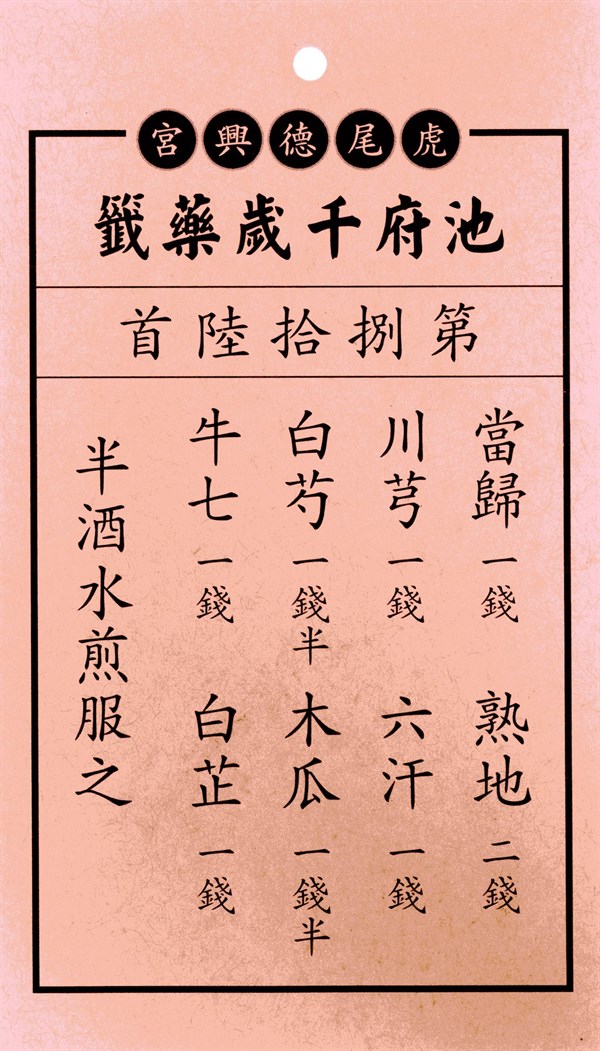 虎尾德興宮
池府千歲藥籤
第捌拾陸首
當歸一錢 熟地二錢
川芎一錢 六汗一錢
白芍一錢半 木瓜一錢半
牛七一錢 白芷一錢
半酒水煎服之